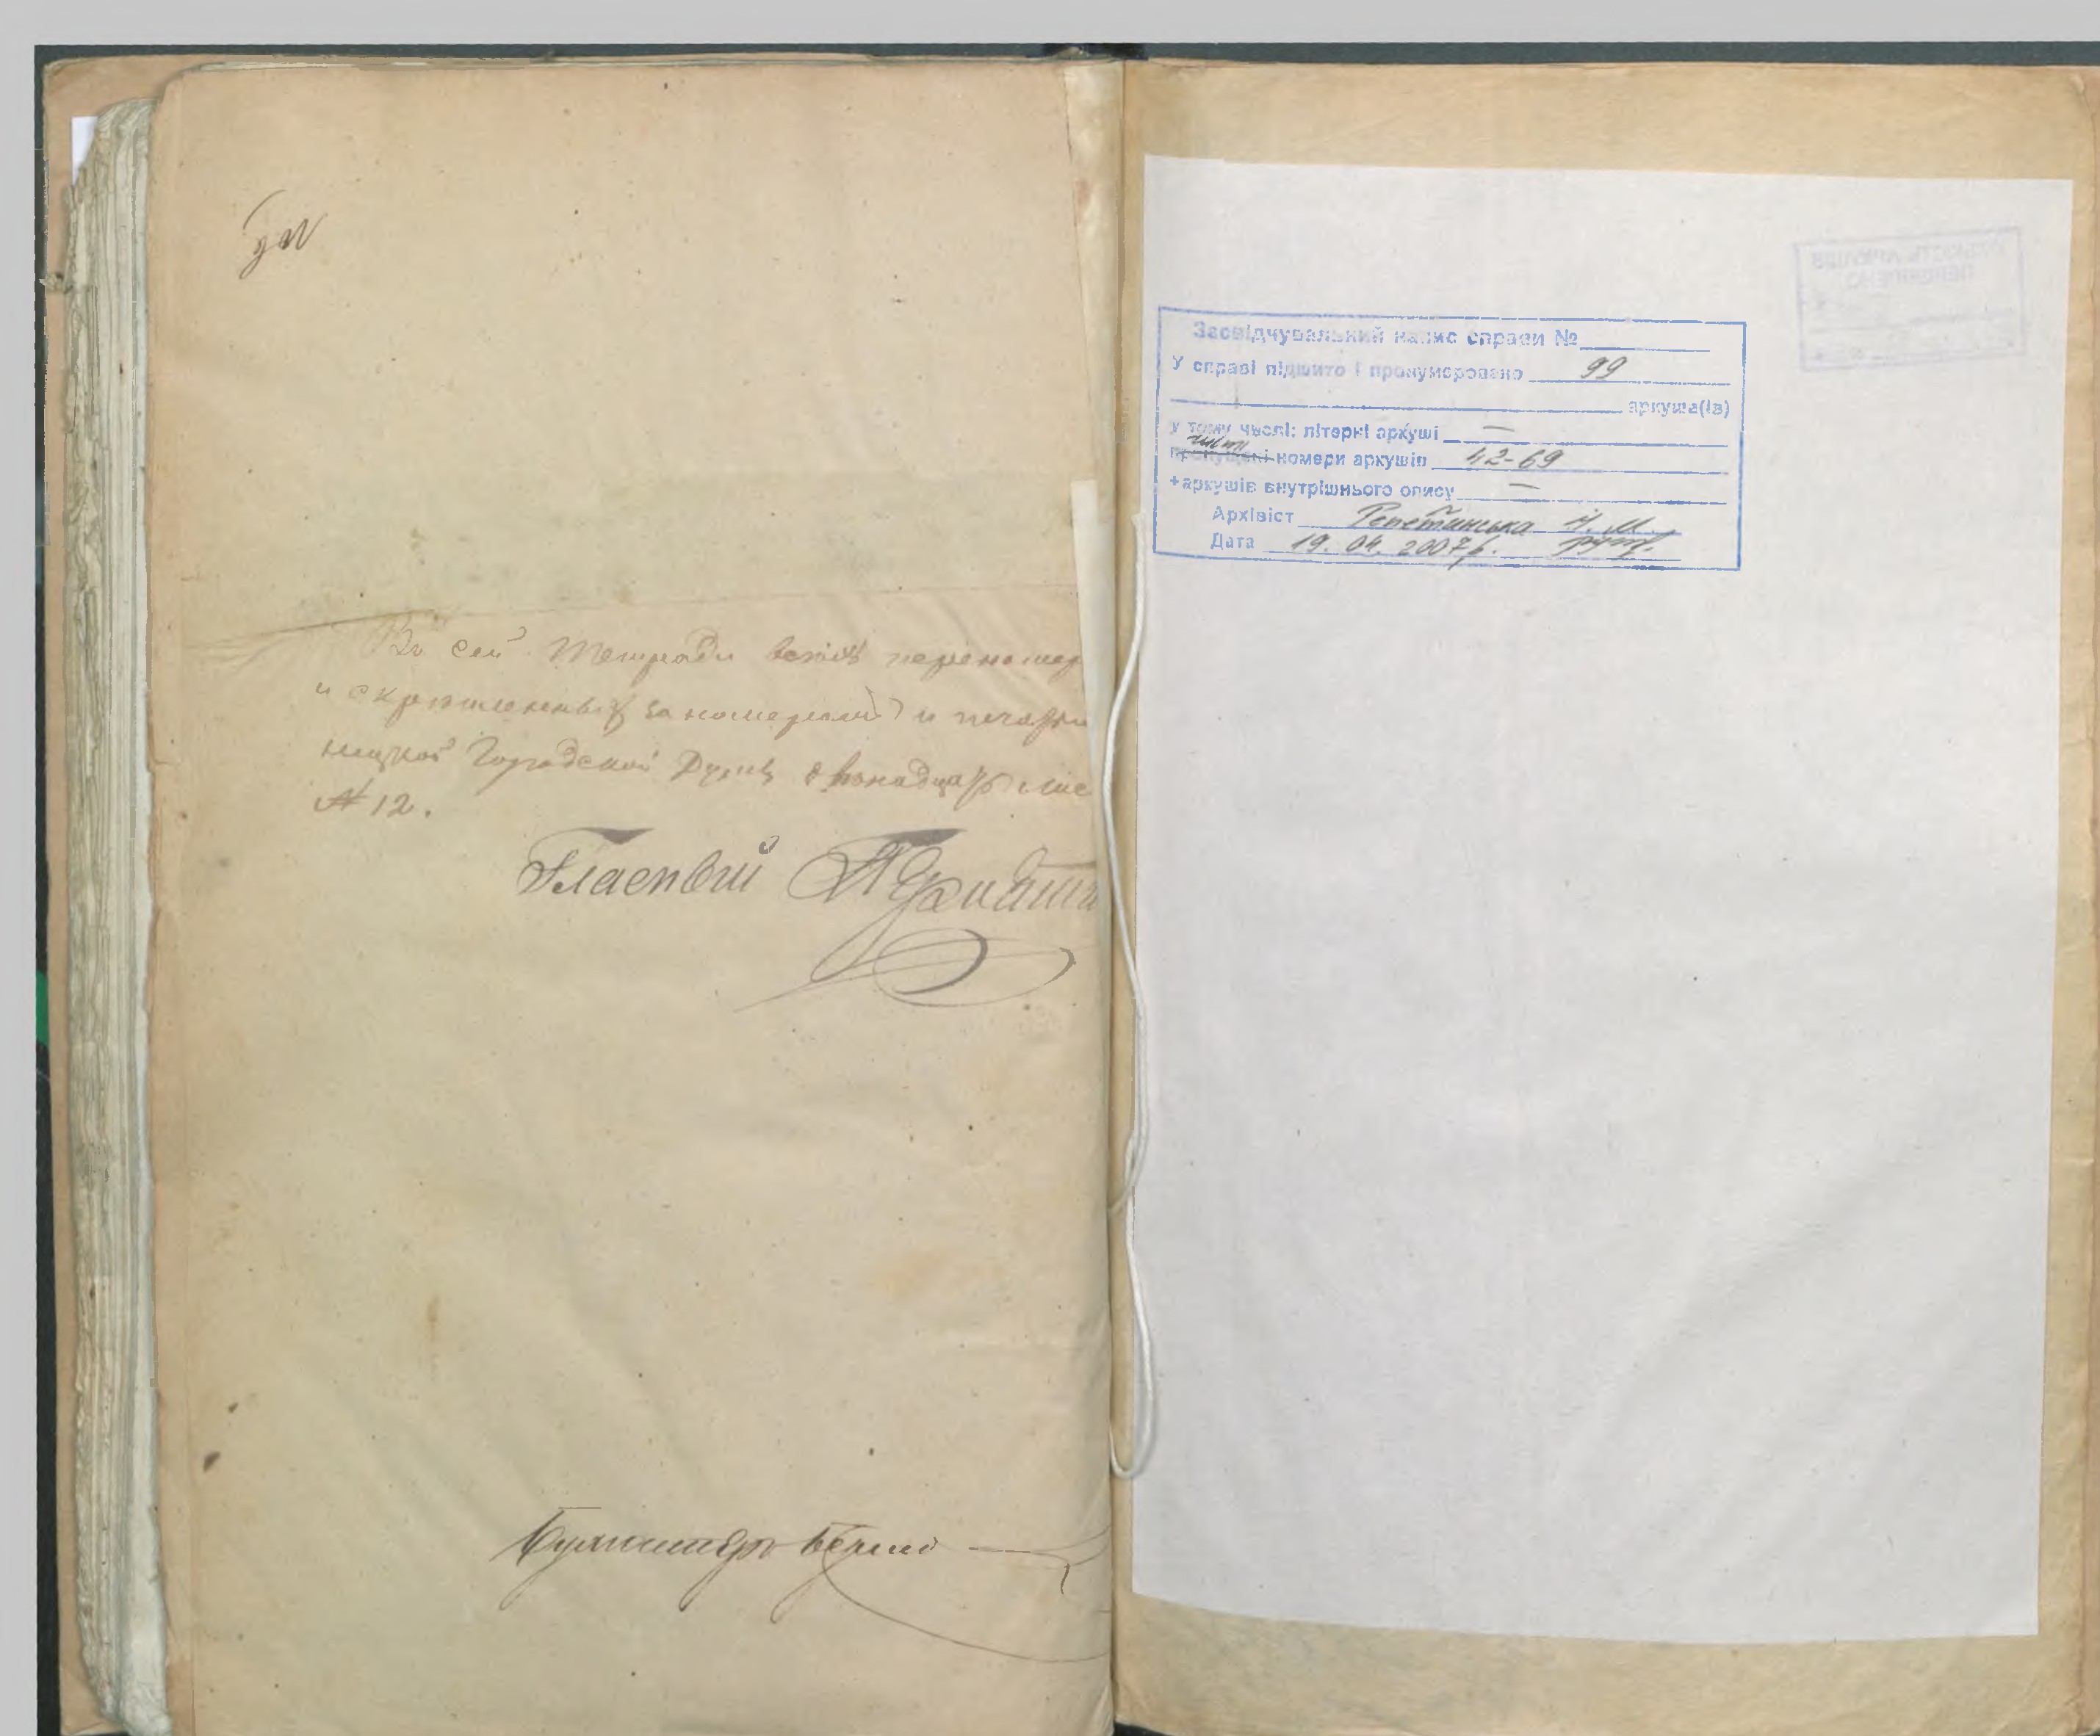 Въ сей Тетради всѣхъ перенумер
и скрѣпленныхъ за номерами и печатью
ницкой Городской Думы двѣнадцать лис
№ 12.
Гласный
Бургомистръ
Засвідчувальний напис справи №
У справі підшито і пронумеровано 99
аркуша(ів)
у тому числі: літерні аркуші —
чисті
пропущені номери аркушів 42-69
+аркушів внутрішнього опису —
Архівіст Репетинська Н. М.
Дата 19. 04. 2007р.
КІЛЬКІСТЬ АРКУШІВ
ПЕРЕВІРЕНО